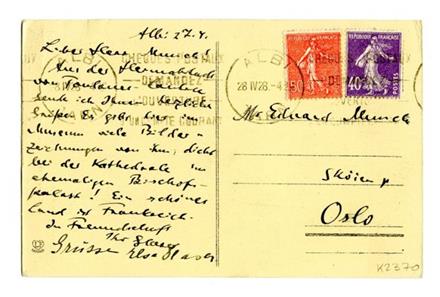 Albi 27.4.
Lieber Herr Munch!
Aus der Heimatstadt
von Toulouse-Lautrec
sende ich Ihnen herzliche
Grüße. Es gibt hier im
Museum viele Bilder +
Zeichnungen von ihm, dicht
bei der Kathedrale im
ehemaligen Bischofs-
palast! Ein schönes
Land ist Frankreich.
In Freundschaft
Ihr Glaser
Grüsse Elsa Glaser
ALBI
CHEQUES POSTAUX
DEMANDEZ
L'OUVERTURE
D'UN COMPTE COURANT
ALBI
28 IV 28
REPUBLIQUE FRANÇAISE
REPUBLIQUE FRANÇAISE
40c
POSTES
Mr Eduard Munch
Sköien p
Oslo
K2370